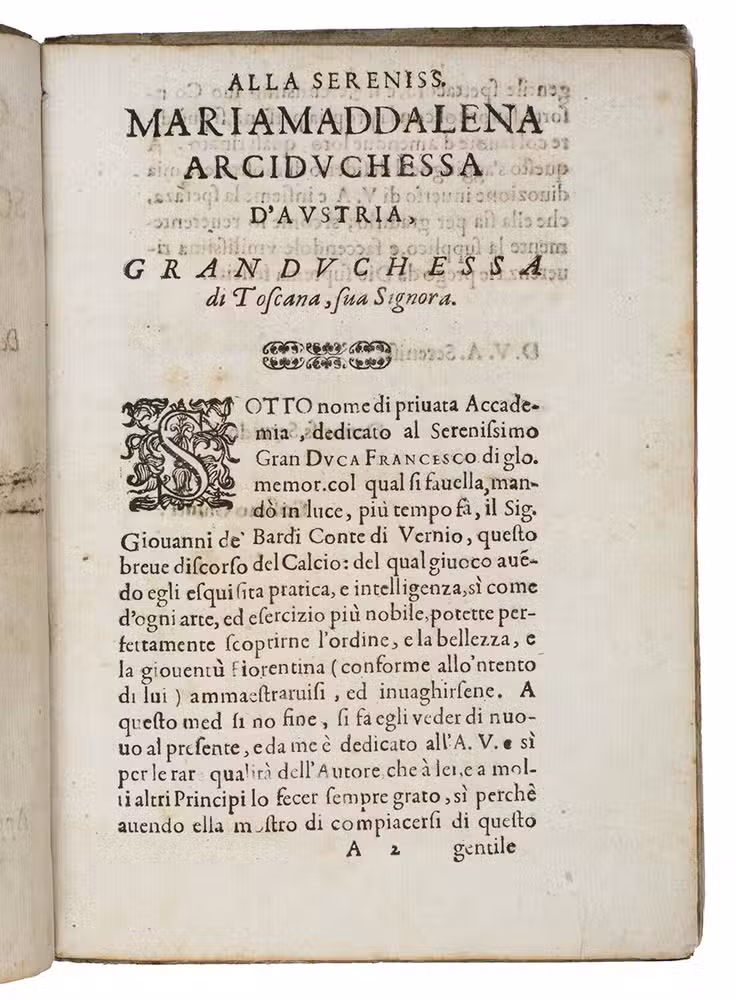 ALLA SERENISS.
MARIAMADDALENA
ARCIDVCHESSA
D'AVSTRIA,
GRANDVCHESSA
di Toſcana, ſua Signora.
SOTTO nome di priuata Accade-
mia, dedicato al Sereniſsimo
Gran DVCA FRANCESCO di glo.
memor. col qual ſi fauella, man-
dò in luce, più tempo fà, il Sig.
Giouanni de' Bardi Conte di Vernio, queſto
breue diſcorſo del Calcio: del qual giuoco auē-
do egli eſquiſita pratica, e intelligenza, sì come
d'ogni arte, ed eſercizio più nobile, potette per-
fettamente ſcoprirne l'ordine, e la bellezza, e
la giouentù Fiorentina (conforme allo'ntento
di lui) ammaeſtraruiſi, ed inuaghirſene. A
queſto med ſi no fine, ſi fa egli veder di nuo-
uo al preſente, e da me è dedicato all'A. V. e sì
per le rar qualità dell'Autore che à lei, e a mol-
ti altri Principi lo fecer ſempre grato, sì perchè
auendo ella moſtro di compiacerſi di queſto
A 2 gentile